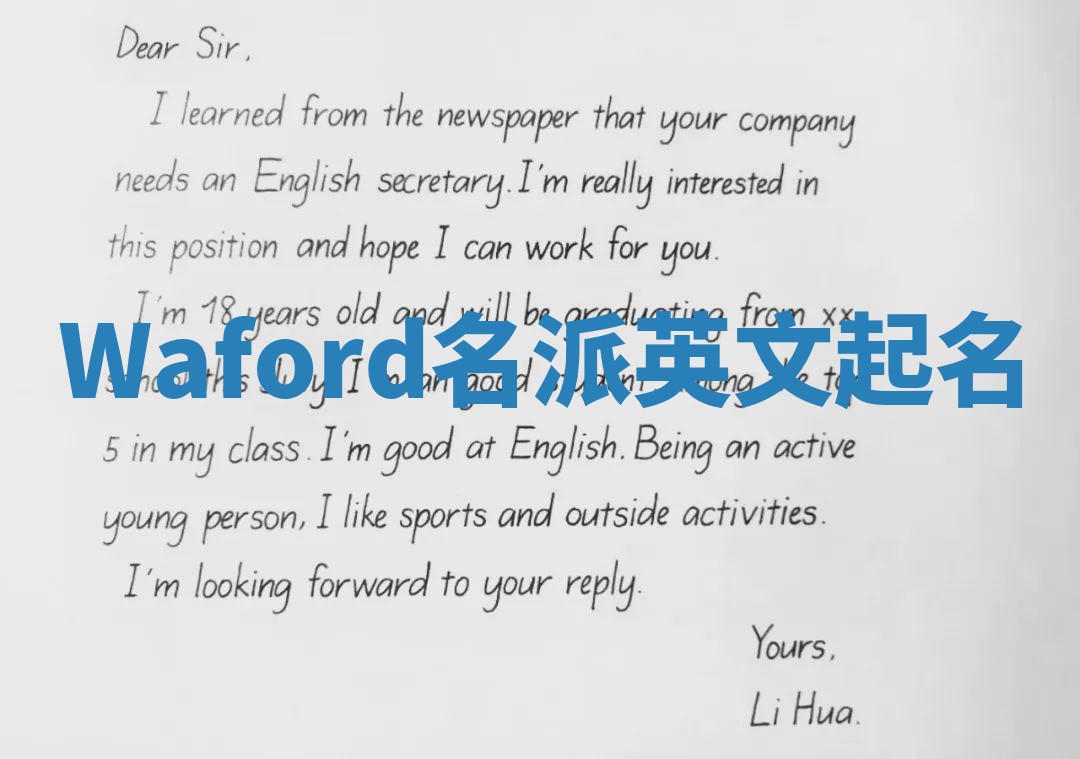 Dear Sir,
I learned from the newspaper that your company
needs an English secretary. I'm really interested in
this position and hope I can work for you.
I'm 18 years old and will be graduating from xx
Waford名派英文起名
this July. I'm an good student among the top
5 in my class. I'm good at English. Being an active
young person, I like sports and outside activities.
I'm looking forward to your reply.
Yours,
Li Hua.